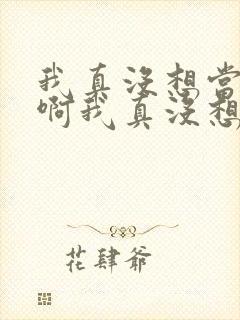 我真没想当
啊我真没想
花肆爷